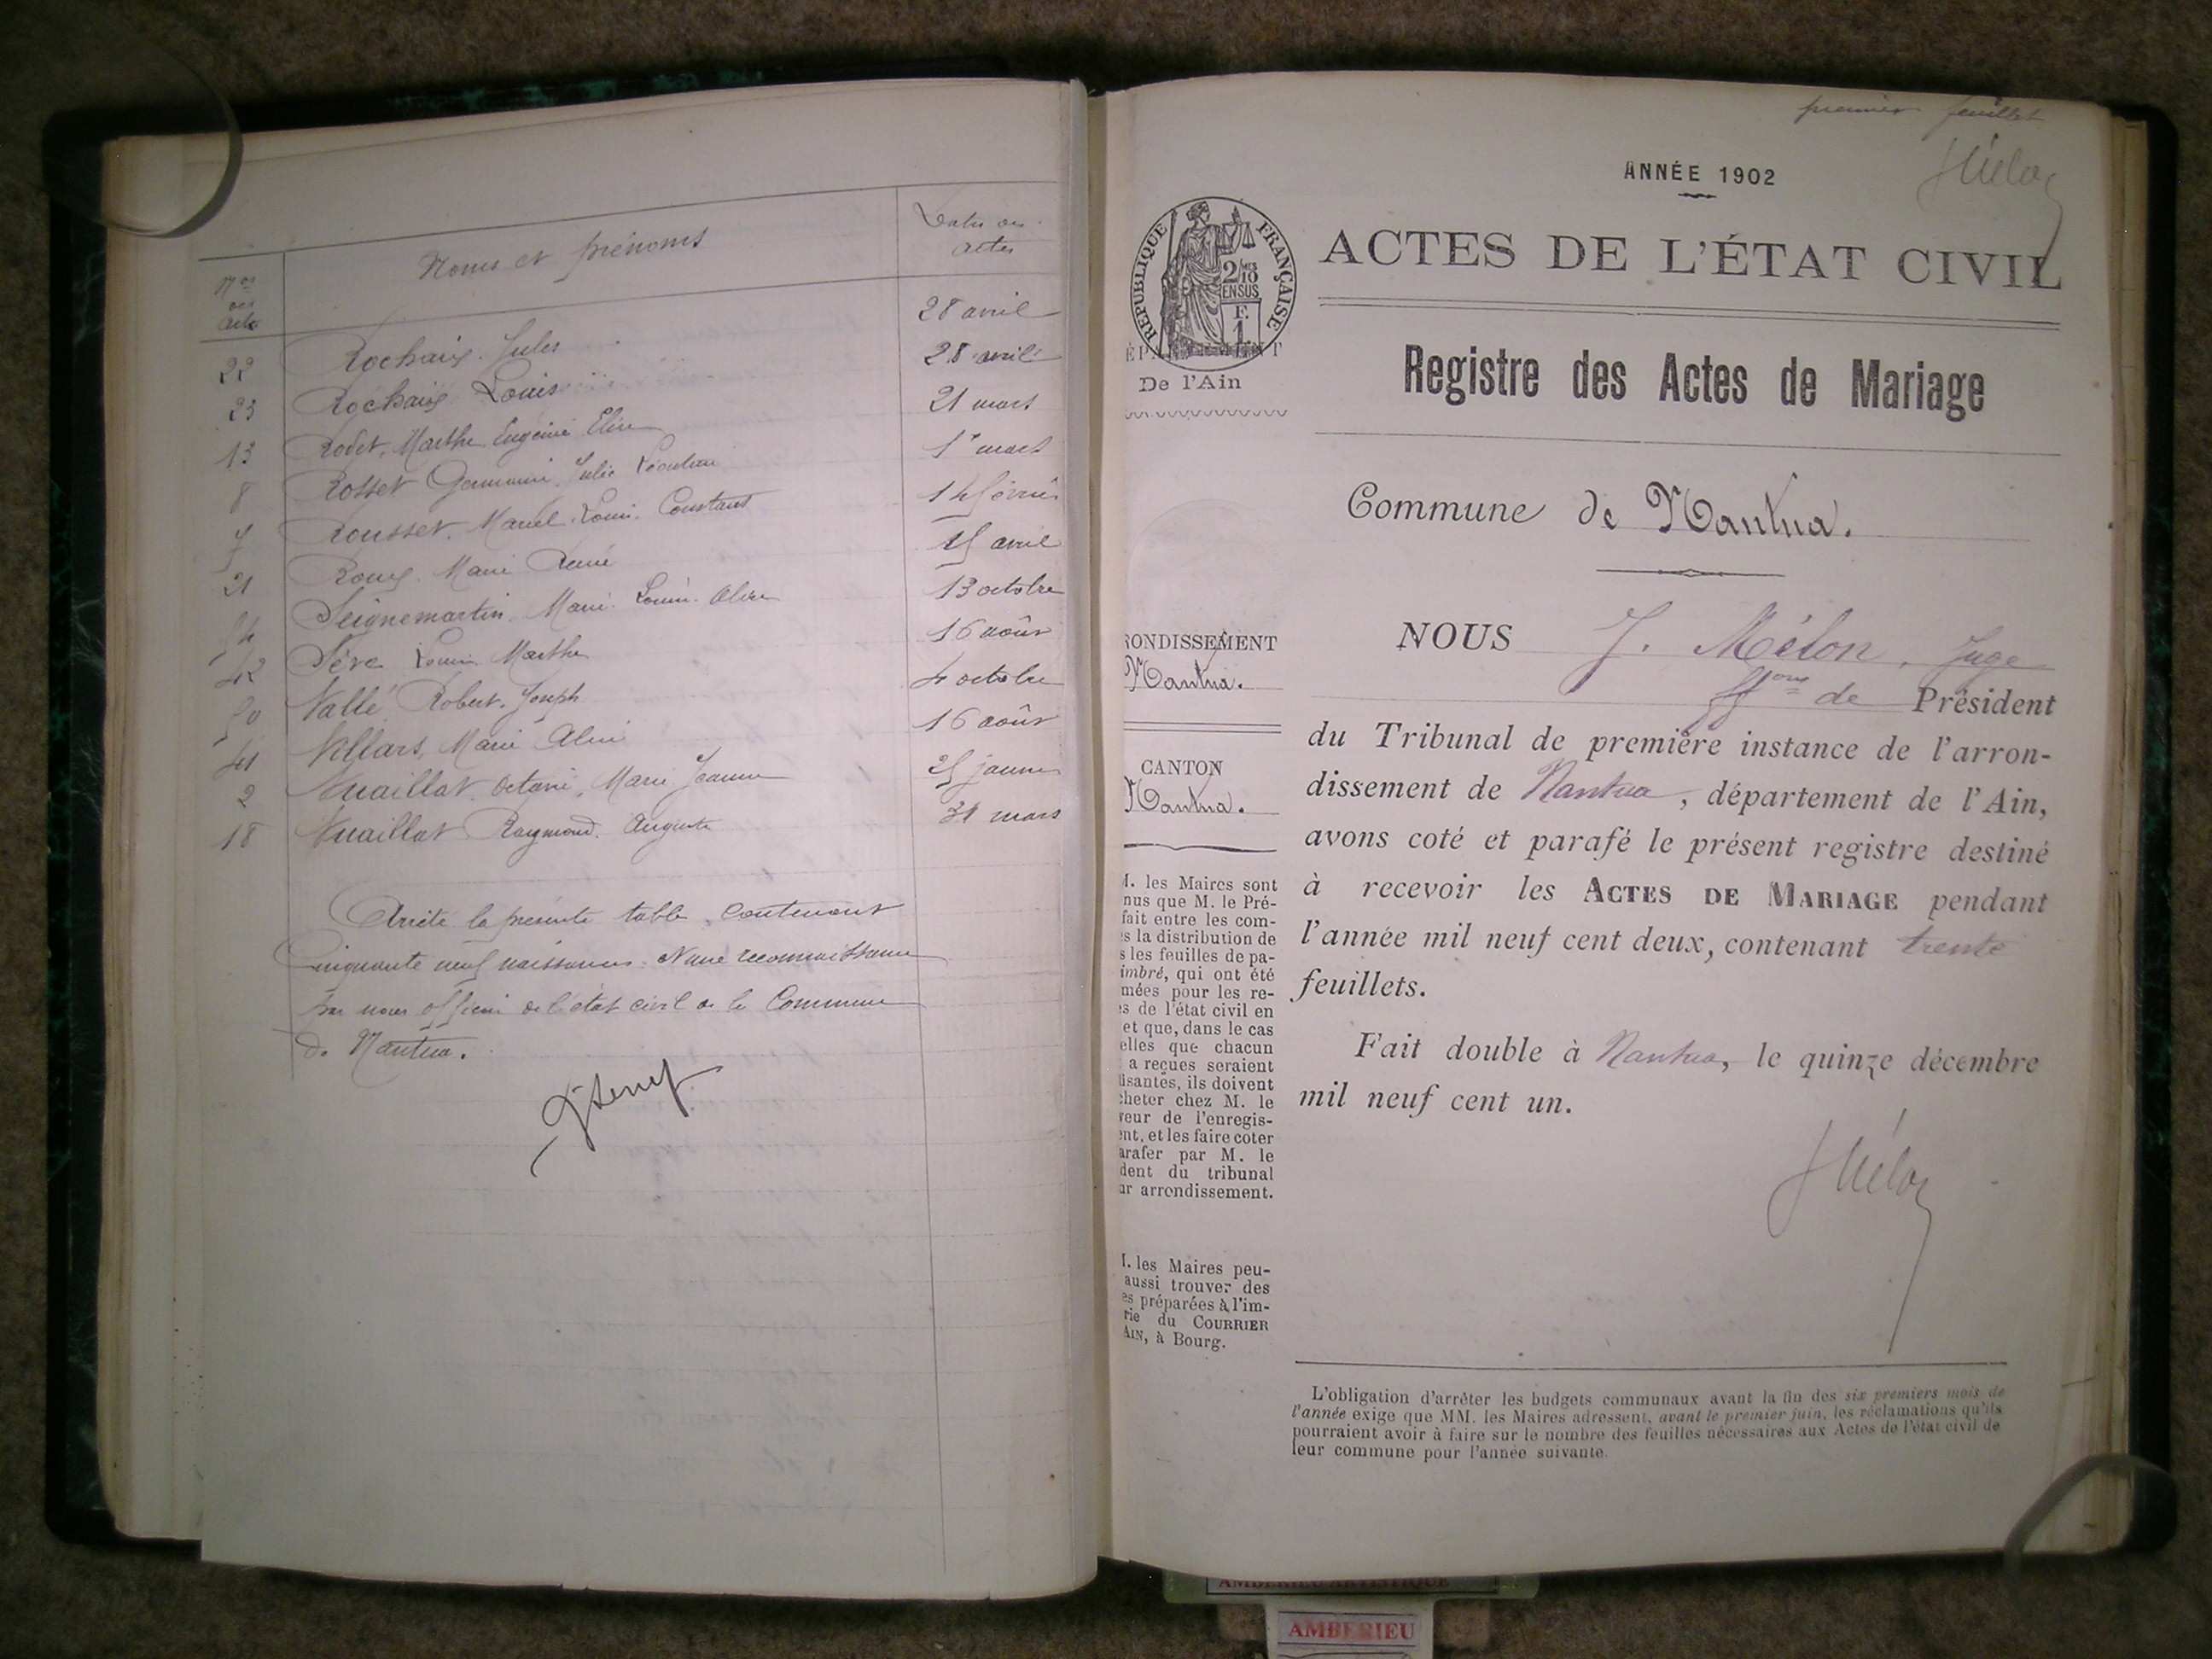 Nos des actes
Noms et prénoms
Dates des actes
22 Rochaix Jules 28 avril
23 Rochaix Louis 28 avril
13 Rodet, Marthe Eugénie 21 mars
8 Rosset Germaine Julie 1r mars
7 Rousset Marcel Louis Constant 14 février
21 Roux Marie René 15 avril
54 Seignemartin Marie Louise 13 octobre
42 Sève Louise Marthe 16 août
50 Vallé Robert Joseph 4 octobre
41 Villars, Marie 16 août
2 Vuaillat Octavie, Marie Jeanne 25 janvier
18 Vuaillat Raymond Auguste 31 mars
Arrêté la présente table, contenant
Cinquante neuf naissances & une reconnaissance
par nous officier de l'état civil de la Commune
de Nantua.
premier feuillet
ANNÉE 1902
RÉPUBLIQUE FRANÇAISE
2/10
EN SUS
F.
1.
De l'Ain
ACTES DE L'ÉTAT CIVIL
Registre des Actes de Mariage
Commune de Nantua.
RONDISSEMENT
Nantua.
CANTON
Nantua.
NOUS J. Mélon, Juge
ffons de Président
du Tribunal de première instance de l'arron-
dissement de Nantua, département de l'Ain,
avons coté et parafé le présent registre destiné
à recevoir les ACTES DE MARIAGE pendant
l'année mil neuf cent deux, contenant trente
feuillets.
Fait double à Nantua, le quinze décembre
mil neuf cent un.
JMélon
M. les Maires sont
nus que M. le Pré-
fait entre les com-
s la distribution de
s les feuilles de pa-
imbré, qui ont été
mées pour les re-
s de l'état civil en
et que, dans le cas
elles que chacun
a reçues seraient
isantes, ils doivent
cheter chez M. le
veur de l'enregis-
nt, et les faire coter
arafer par M. le
dent du tribunal
ur arrondissement.
M. les Maires peu-
aussi trouver des
es préparées à l'im-
rie du COURRIER
AIN, à Bourg.
L'obligation d'arrêter les budgets communaux avant la fin des six premiers mois de
l'année exige que MM. les Maires adressent, avant le premier juin, les réclamations qu'ils
pourraient avoir à faire sur le nombre des feuilles nécessaires aux Actes de l'état civil de
leur commune pour l'année suivante.
AMBERIEU ARTISTIQUE
AMBERIEU